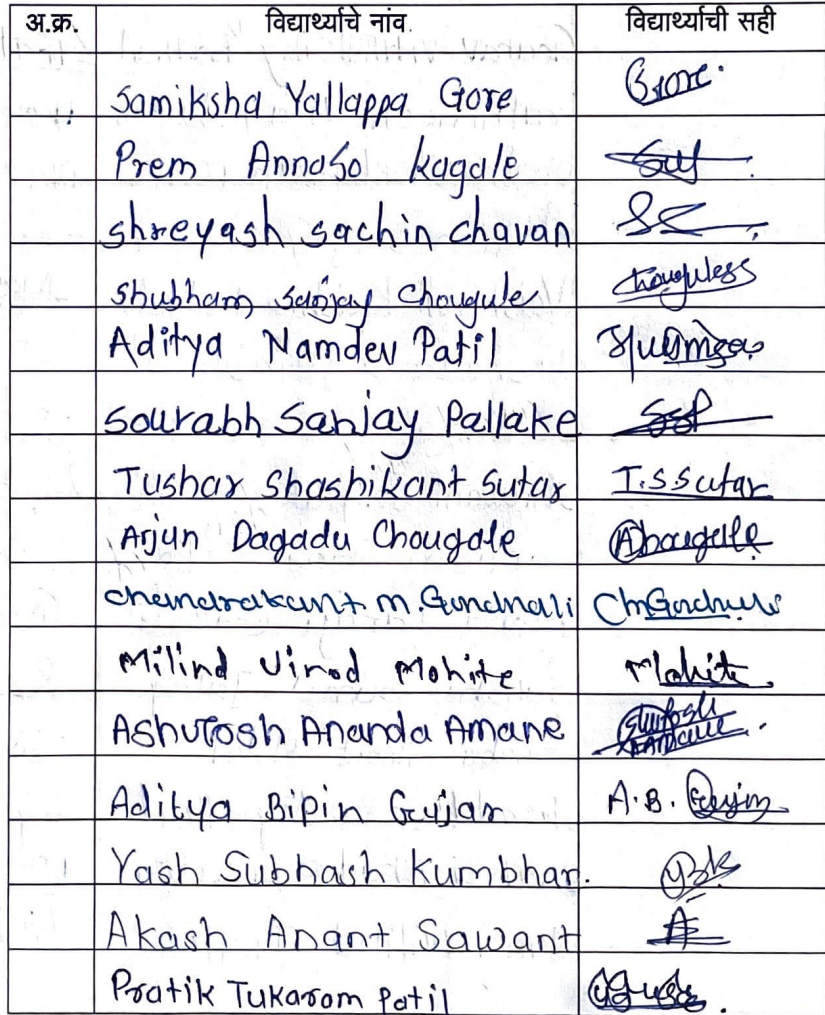 अ.क्र. विद्यार्थ्याचे नांव. विद्यार्थ्याची सही
Samiksha Yallappa Gore Gore.
Prem Annaso kagale
shreyash sachin chavan
Shubham Sanjay Chougule Chouguless
Aditya Namdev Patil
Sourabh Sanjay Pallake SSP
Tushar Shashikant Sutar T.S Sutar
Arjun Dagadu Chougale AChougale
chandrakant m. Gundnali
Milind Vinod Mohite Mohite
Ashutosh Ananda Amane
Aditya Bipin Gujar A.B.
Yash Subhash Kumbhar.
Akash Anant Sawant A
Pratik Tukaram Patil